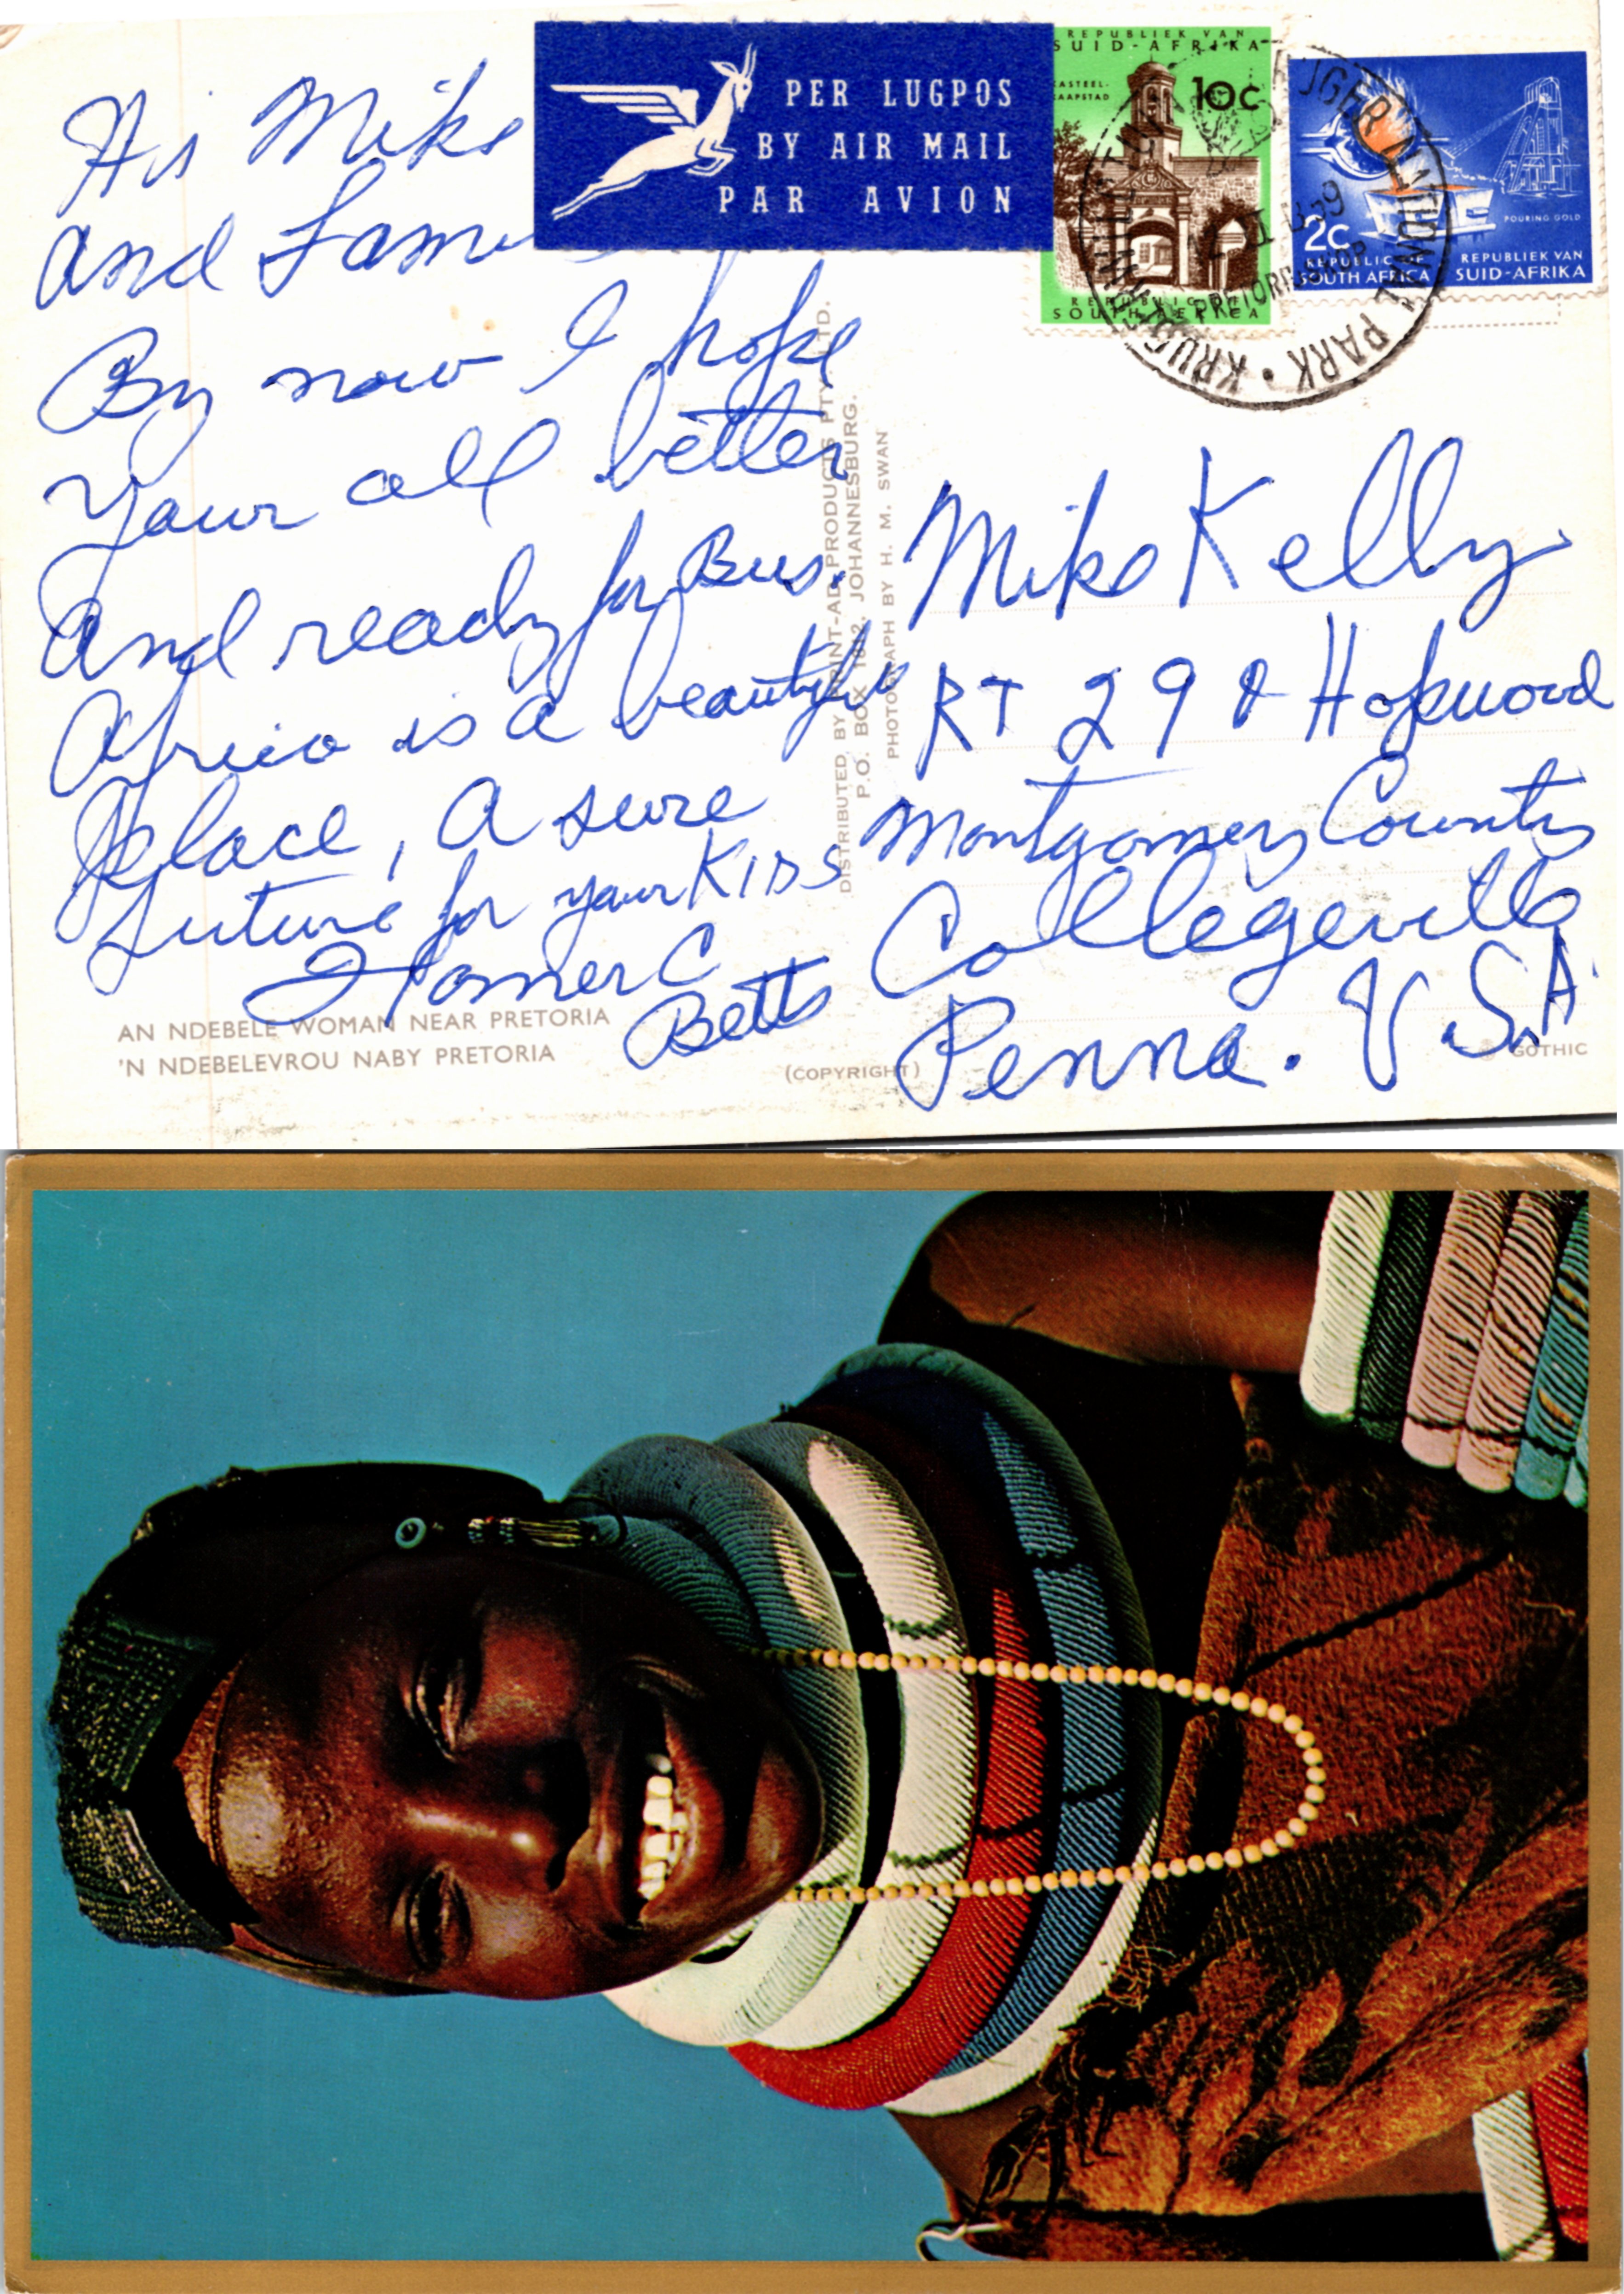 Hi Mike
and Fam
By now I hope
Your all better
and ready for Bus.
Africa is a beautiful
place, a sure
future for your KIDS
Homer C
Betts
PER LUGPOS
BY AIR MAIL
PAR AVION
REPUBLIEK VAN
SUID-AFRIKA
KASTEEL-
KAAPSTAD
10c
REPUBLIC OF
SOUTH AFRICA
POURING GOLD
2c
REPUBLIC OF
SOUTH AFRICA
REPUBLIEK VAN
SUID-AFRIKA
PRETORIUSKOP
NATIONAL PARK • KRUGER
DISTRIBUTED BY PRINT-AD PRODUCTS PTY. LTD.
P.O. BOX JOHANNESBURG.
PHOTOGRAPH BY H. M. SWAN
Mike Kelly
RT 29 & Hopwood
Montgomery County
Collegeville
Penna. U.S.A.
AN NDEBELE WOMAN NEAR PRETORIA
'N NDEBELEVROU NABY PRETORIA
(COPYRIGHT)
GOTHIC